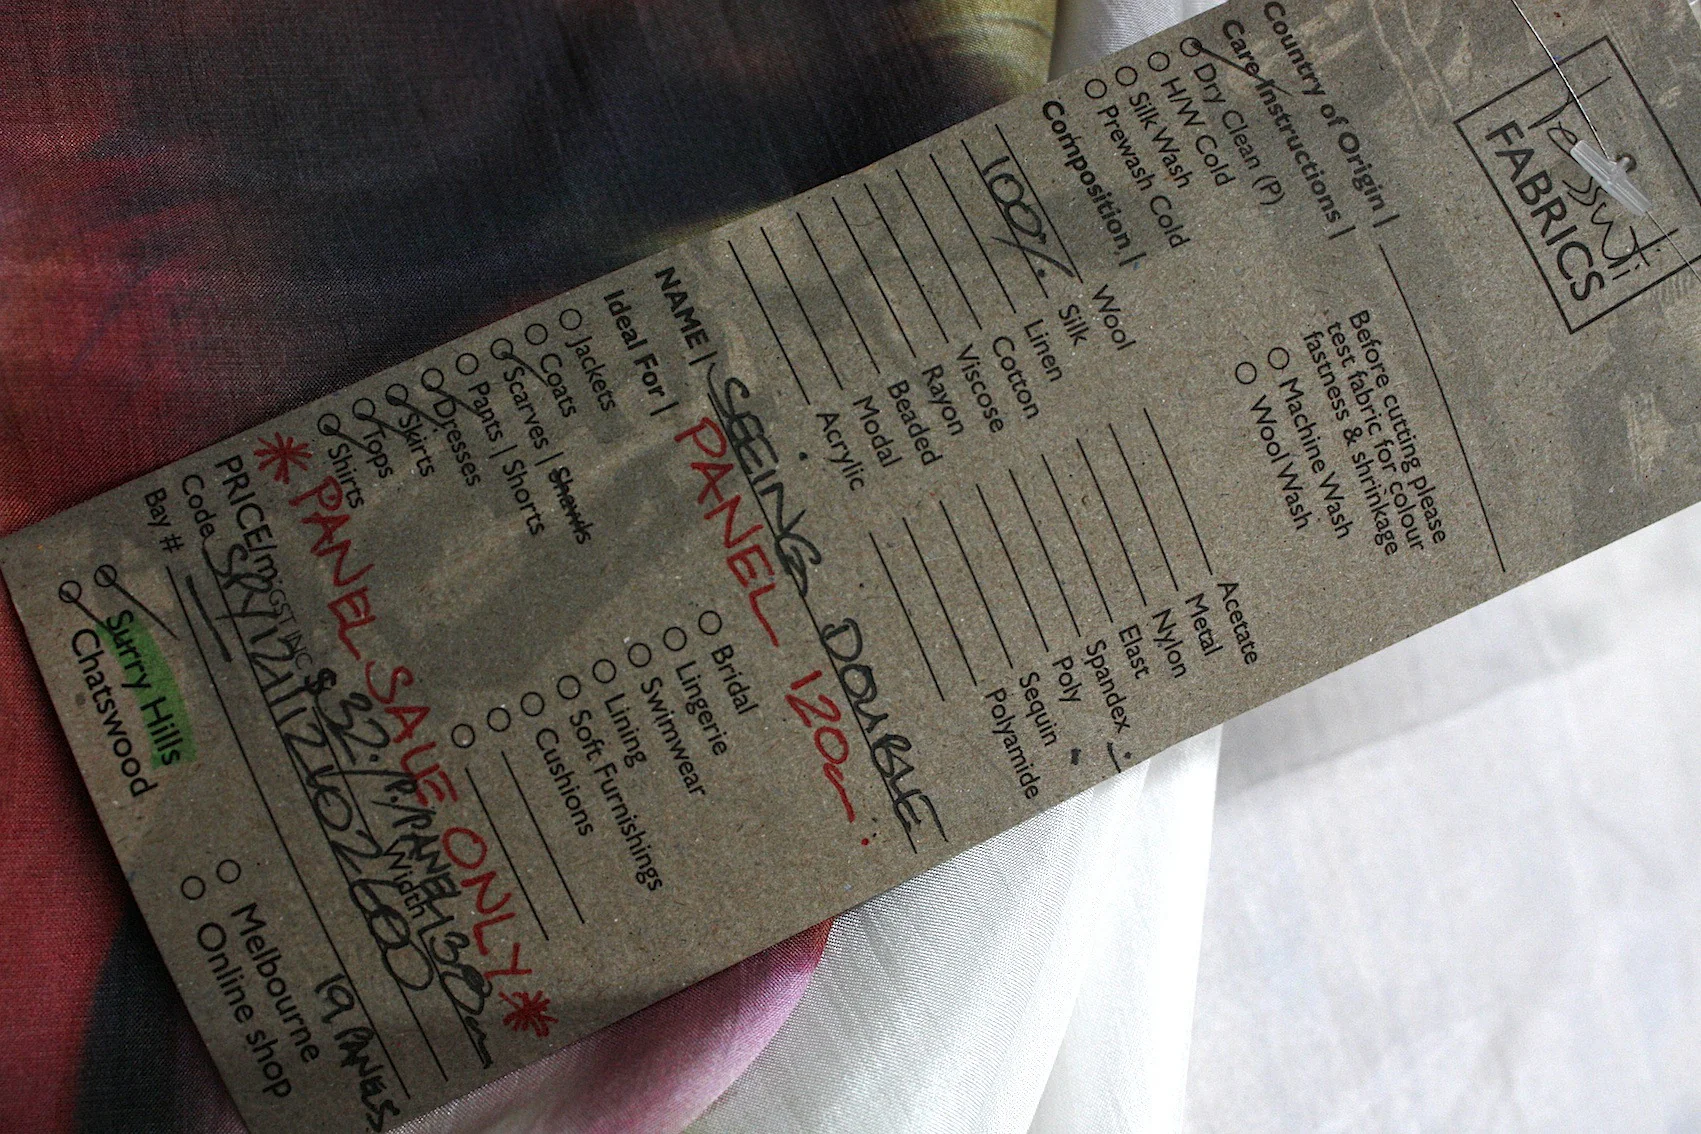 Tessuti
FABRICS
Country of Origin |
Care Instructions |
Dry Clean (P)
H/W Cold
Silk Wash
Prewash Cold
Before cutting please
test fabric for colour
fastness & shrinkage
Machine Wash
Wool Wash
Composition |
Wool
100% Silk
Linen
Cotton
Viscose
Rayon
Beaded
Modal
Acrylic
Acetate
Metal
Nylon
Elast
Spandex
Poly
Sequin
Polyamide
NAME | SEEING DOUBLE
PANEL 120cm
Ideal For |
Jackets
Coats
Scarves | Shawls
Pants | Shorts
Dresses
Skirts
Tops
Shirts
Bridal
Lingerie
Swimwear
Lining
Soft Furnishings
Cushions
* PANEL SALE ONLY *
PRICE/m (GST INC) $32. P./PANEL Width 130cm
Code
Bay #
19 PANELS
Surry Hills
Chatswood
Melbourne
Online shop